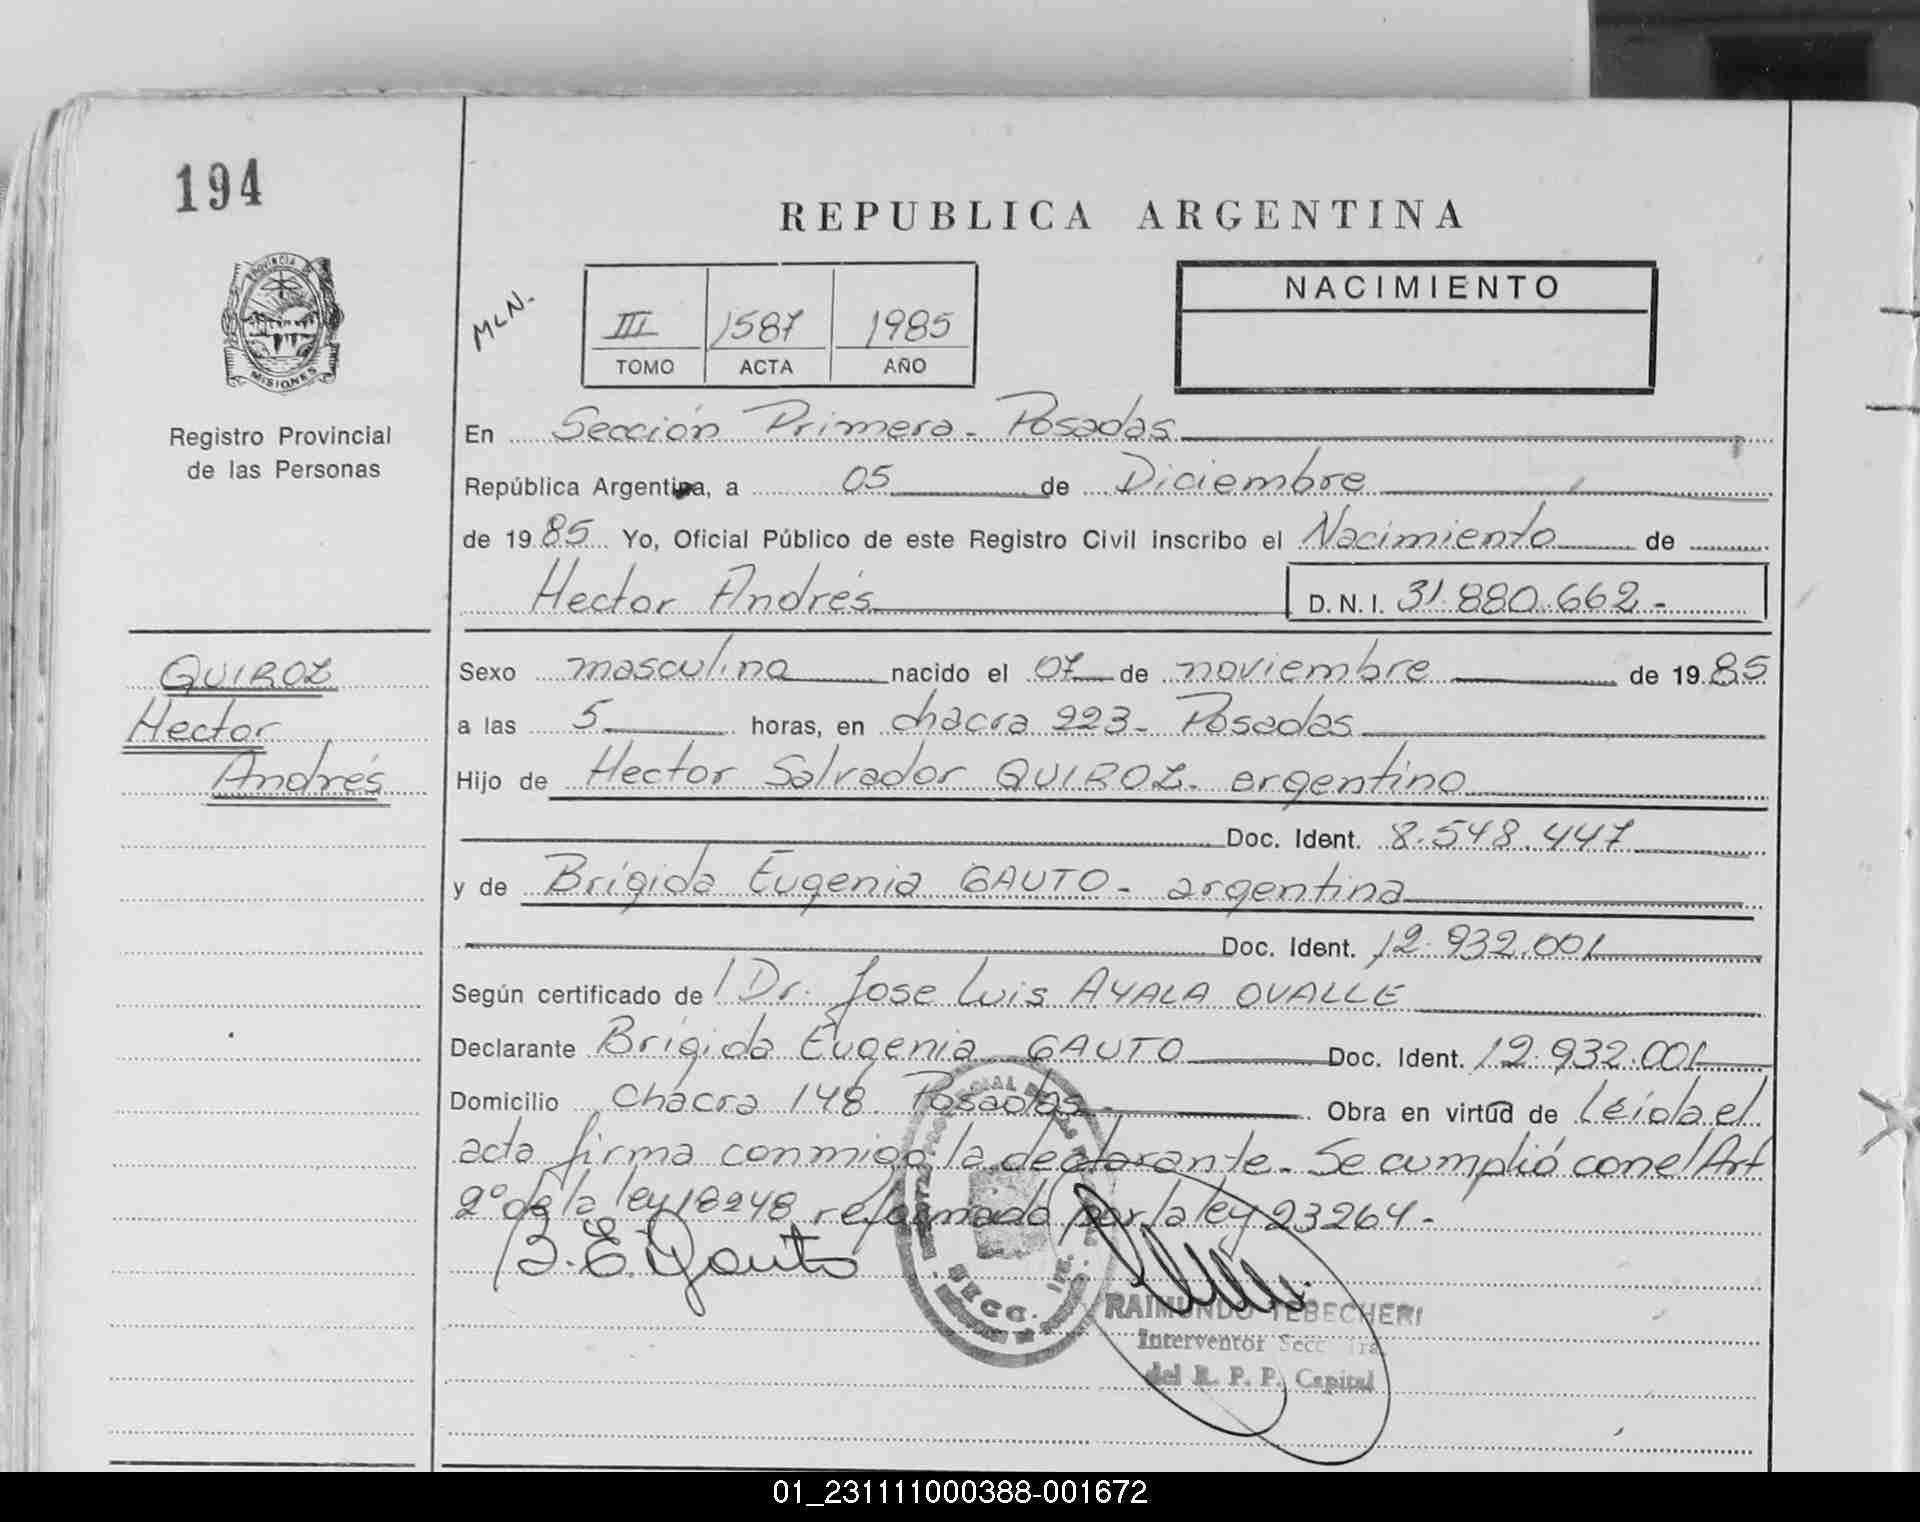 194
REPUBLICA ARGENTINA
PROVINCIA DE
MISIONES
Registro Provincial
de las Personas
MLN.
III 1587 1985
TOMO ACTA AÑO
NACIMIENTO
En Sección Primera - Posadas
República Argentina, a 05 de Diciembre
de 19 85 Yo, Oficial Público de este Registro Civil inscribo el Nacimiento de
Hector Andrés D.N.I. 31.880.662.-
QUIROZ
Hector
Andrés
Sexo masculino nacido el 07 de noviembre de 19 85
a las 5 horas, en chacra 223 - Posadas
Hijo de Hector Salvador QUIROZ - argentino
Doc. Ident. 8.548.447
y de Brígida Eugenia GAUTO - argentina
Doc. Ident. 12.932.001
Según certificado de l Dr. Jose Luis AYALA OVALLE
Declarante Brígida Eugenia GAUTO Doc. Ident. 12.932.001
Domicilio Chacra 148. Posadas - Obra en virtud de Leída el
acta firma conmigo la declarante. Se cumplió con el Art
2º de la ley 18248 reformado por la ley 23264.-
B. E. Gauto
SECC. 1RA.
RAIMUNDO TEBECHERI
Interventor Secc. 1ra.
del R. P. P. Capital
01_231111000388-001672